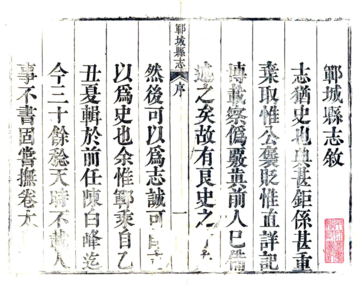 鄆城縣志敘
志猶史也典甚鉅係甚重
棄取惟公褒貶惟直詳記
博載察偽嚴真前人已備
述之矣故有良史之
然後可以為志誠可
以為史也余惟鄆乘自乙
丑夏輯於前任陳白峰迄
今三十餘稔天時不
事不書固嘗撫卷
鄆城縣志
序
一